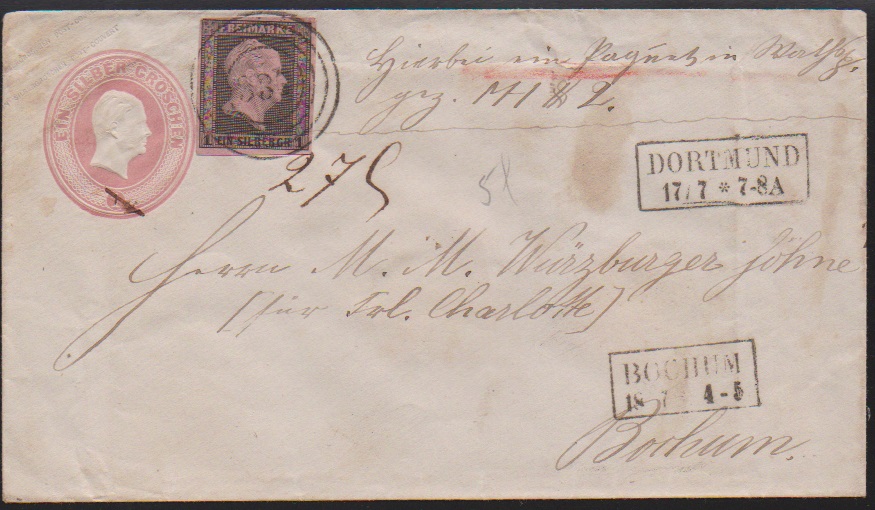 EIN SILBER GROSCHEN
FREIMARKE
1 EIN SILBERGR. 1
Hierbei ein Paquet in
gez. M 1 & 2.
275
5
DORTMUND
17/7 * 7-8A
Herrn M. M. Würzburger Söhne
(für Frl. Charlotte)
BOCHUM
18 7 4-5
Bochum.